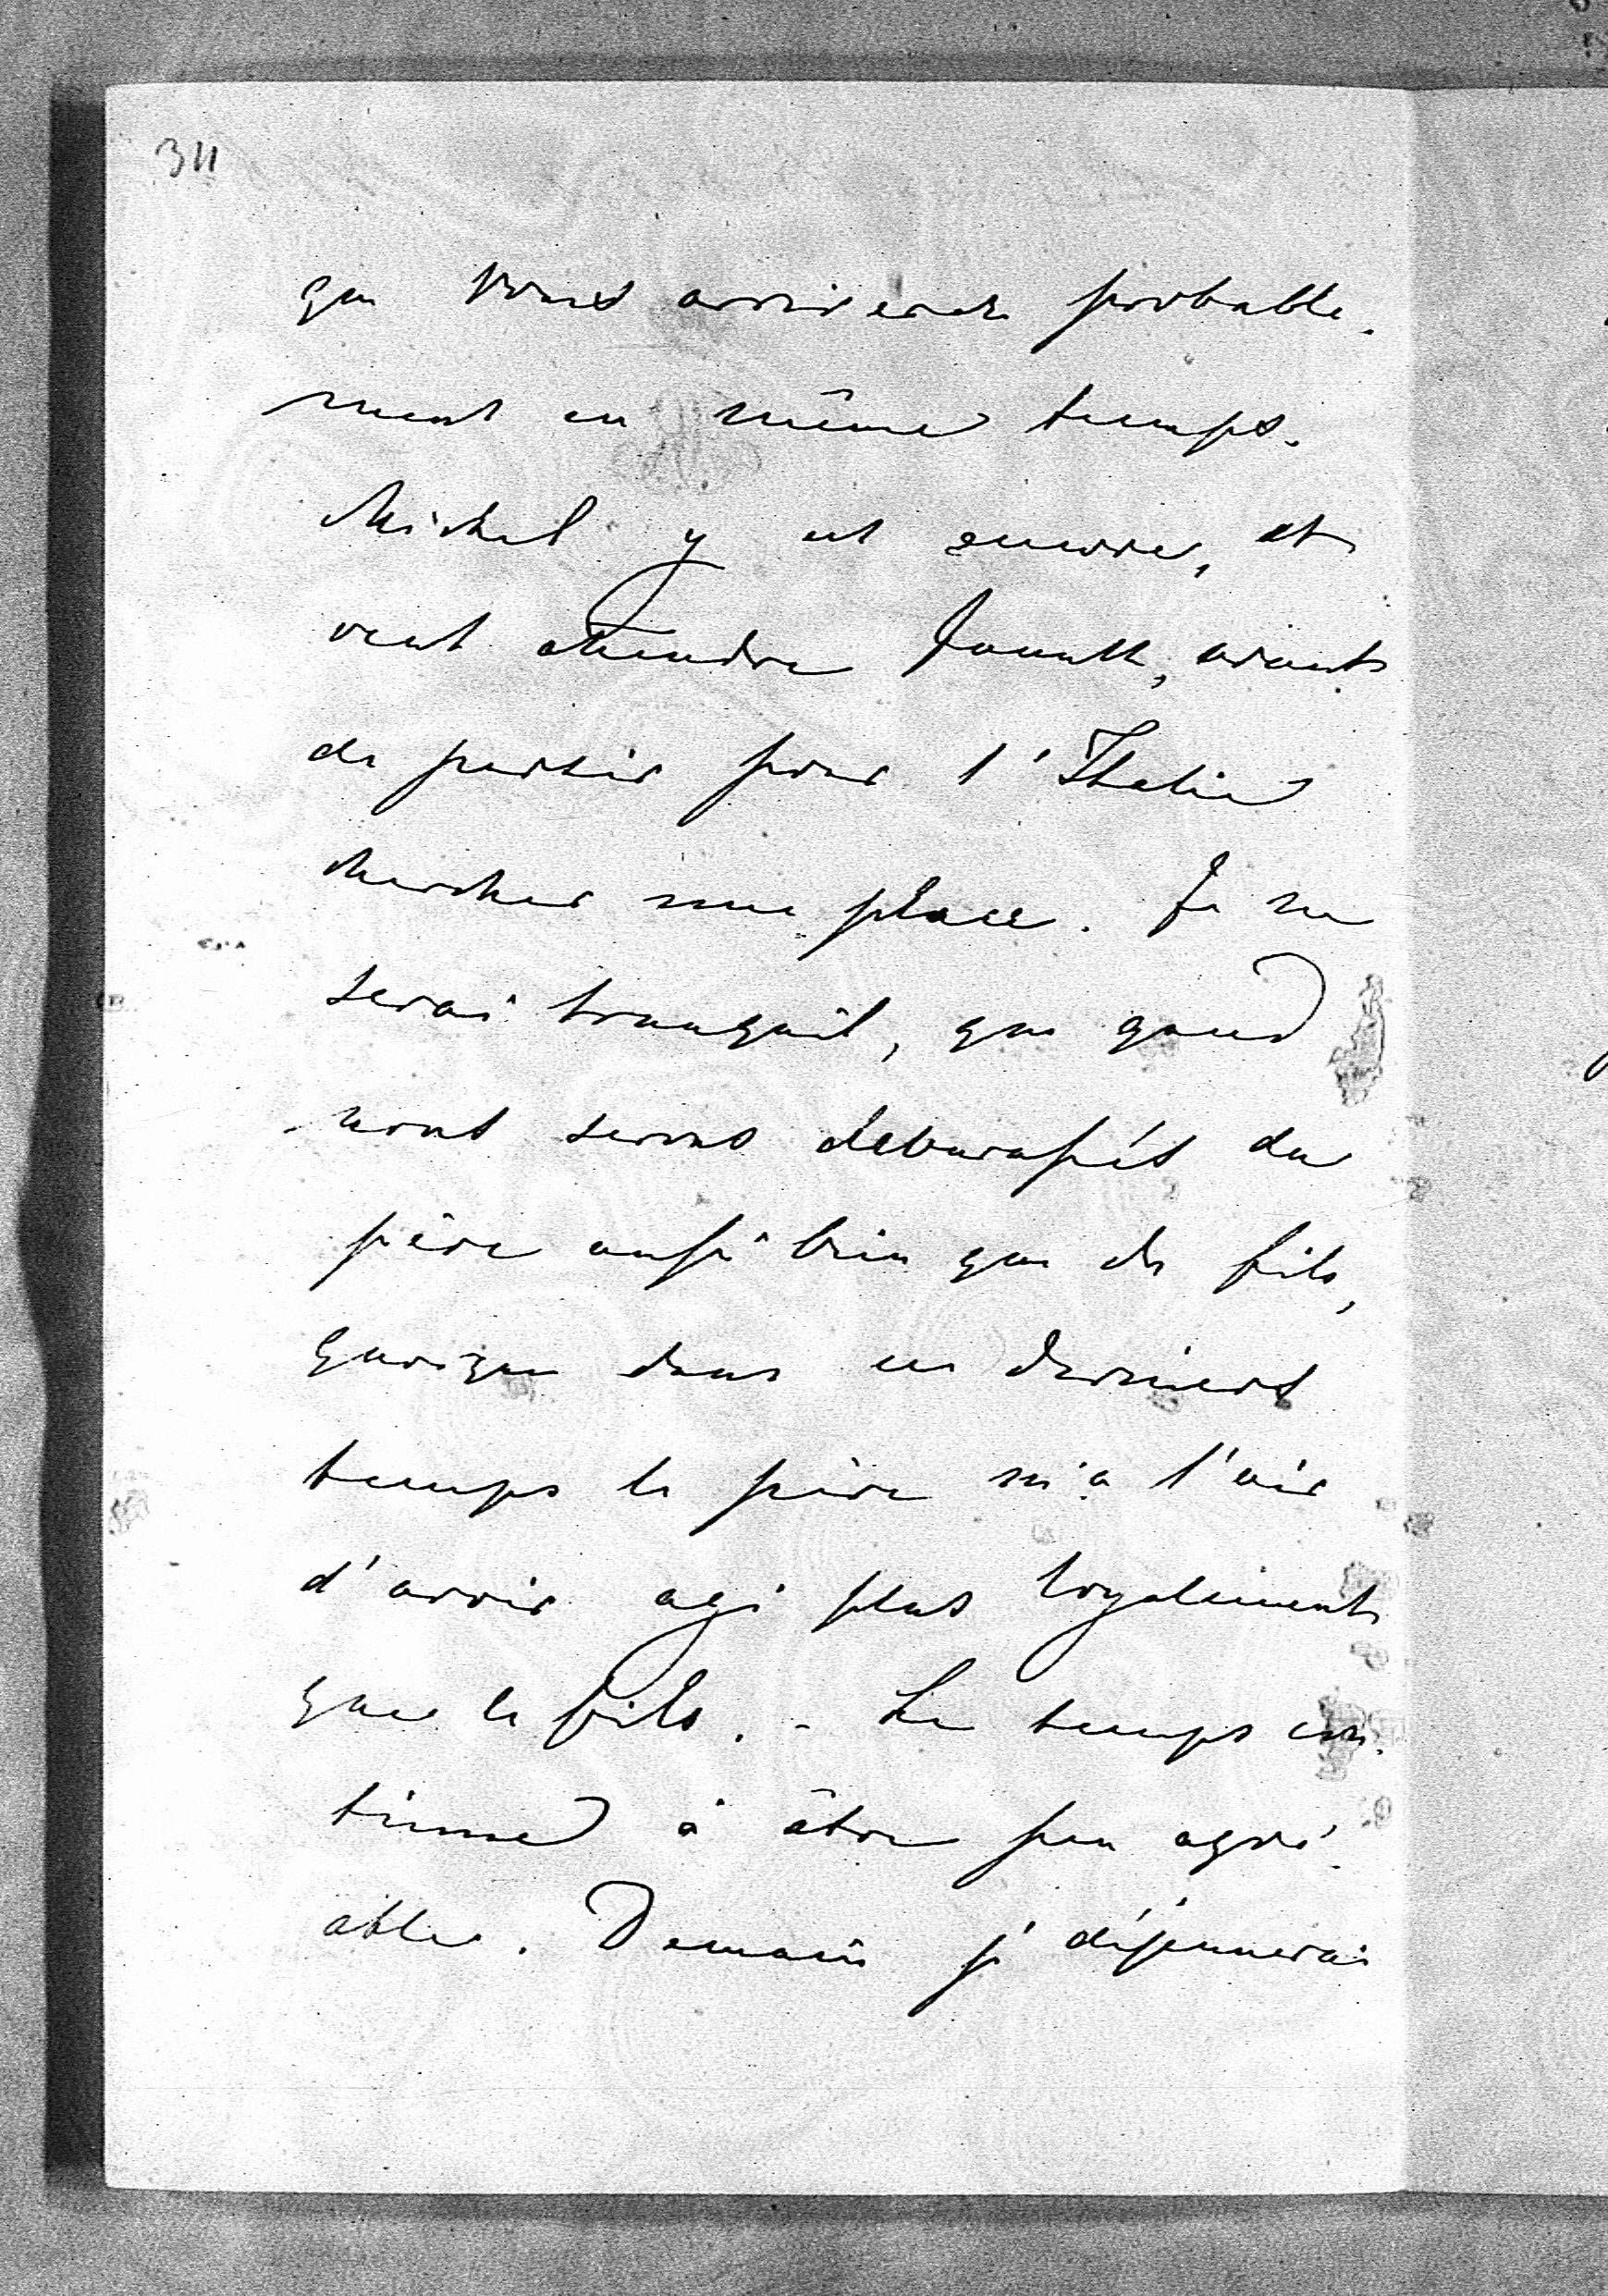 311
que vous arriverez probable-
ment en même temps.
Michel y est encore, et
veut attendre avant
de partir pour l'Italie
chercher une place. Je ne
serai tranquil, que quand
nous serons débarassés du
père aussi bien que du fils,
quoique dans ces derniers
temps le père m'a l'air
d'avoir agi plus loyalement
que le fils. - Le temps con-
tinue à être peu agré-
able. Demain je déjeunerai